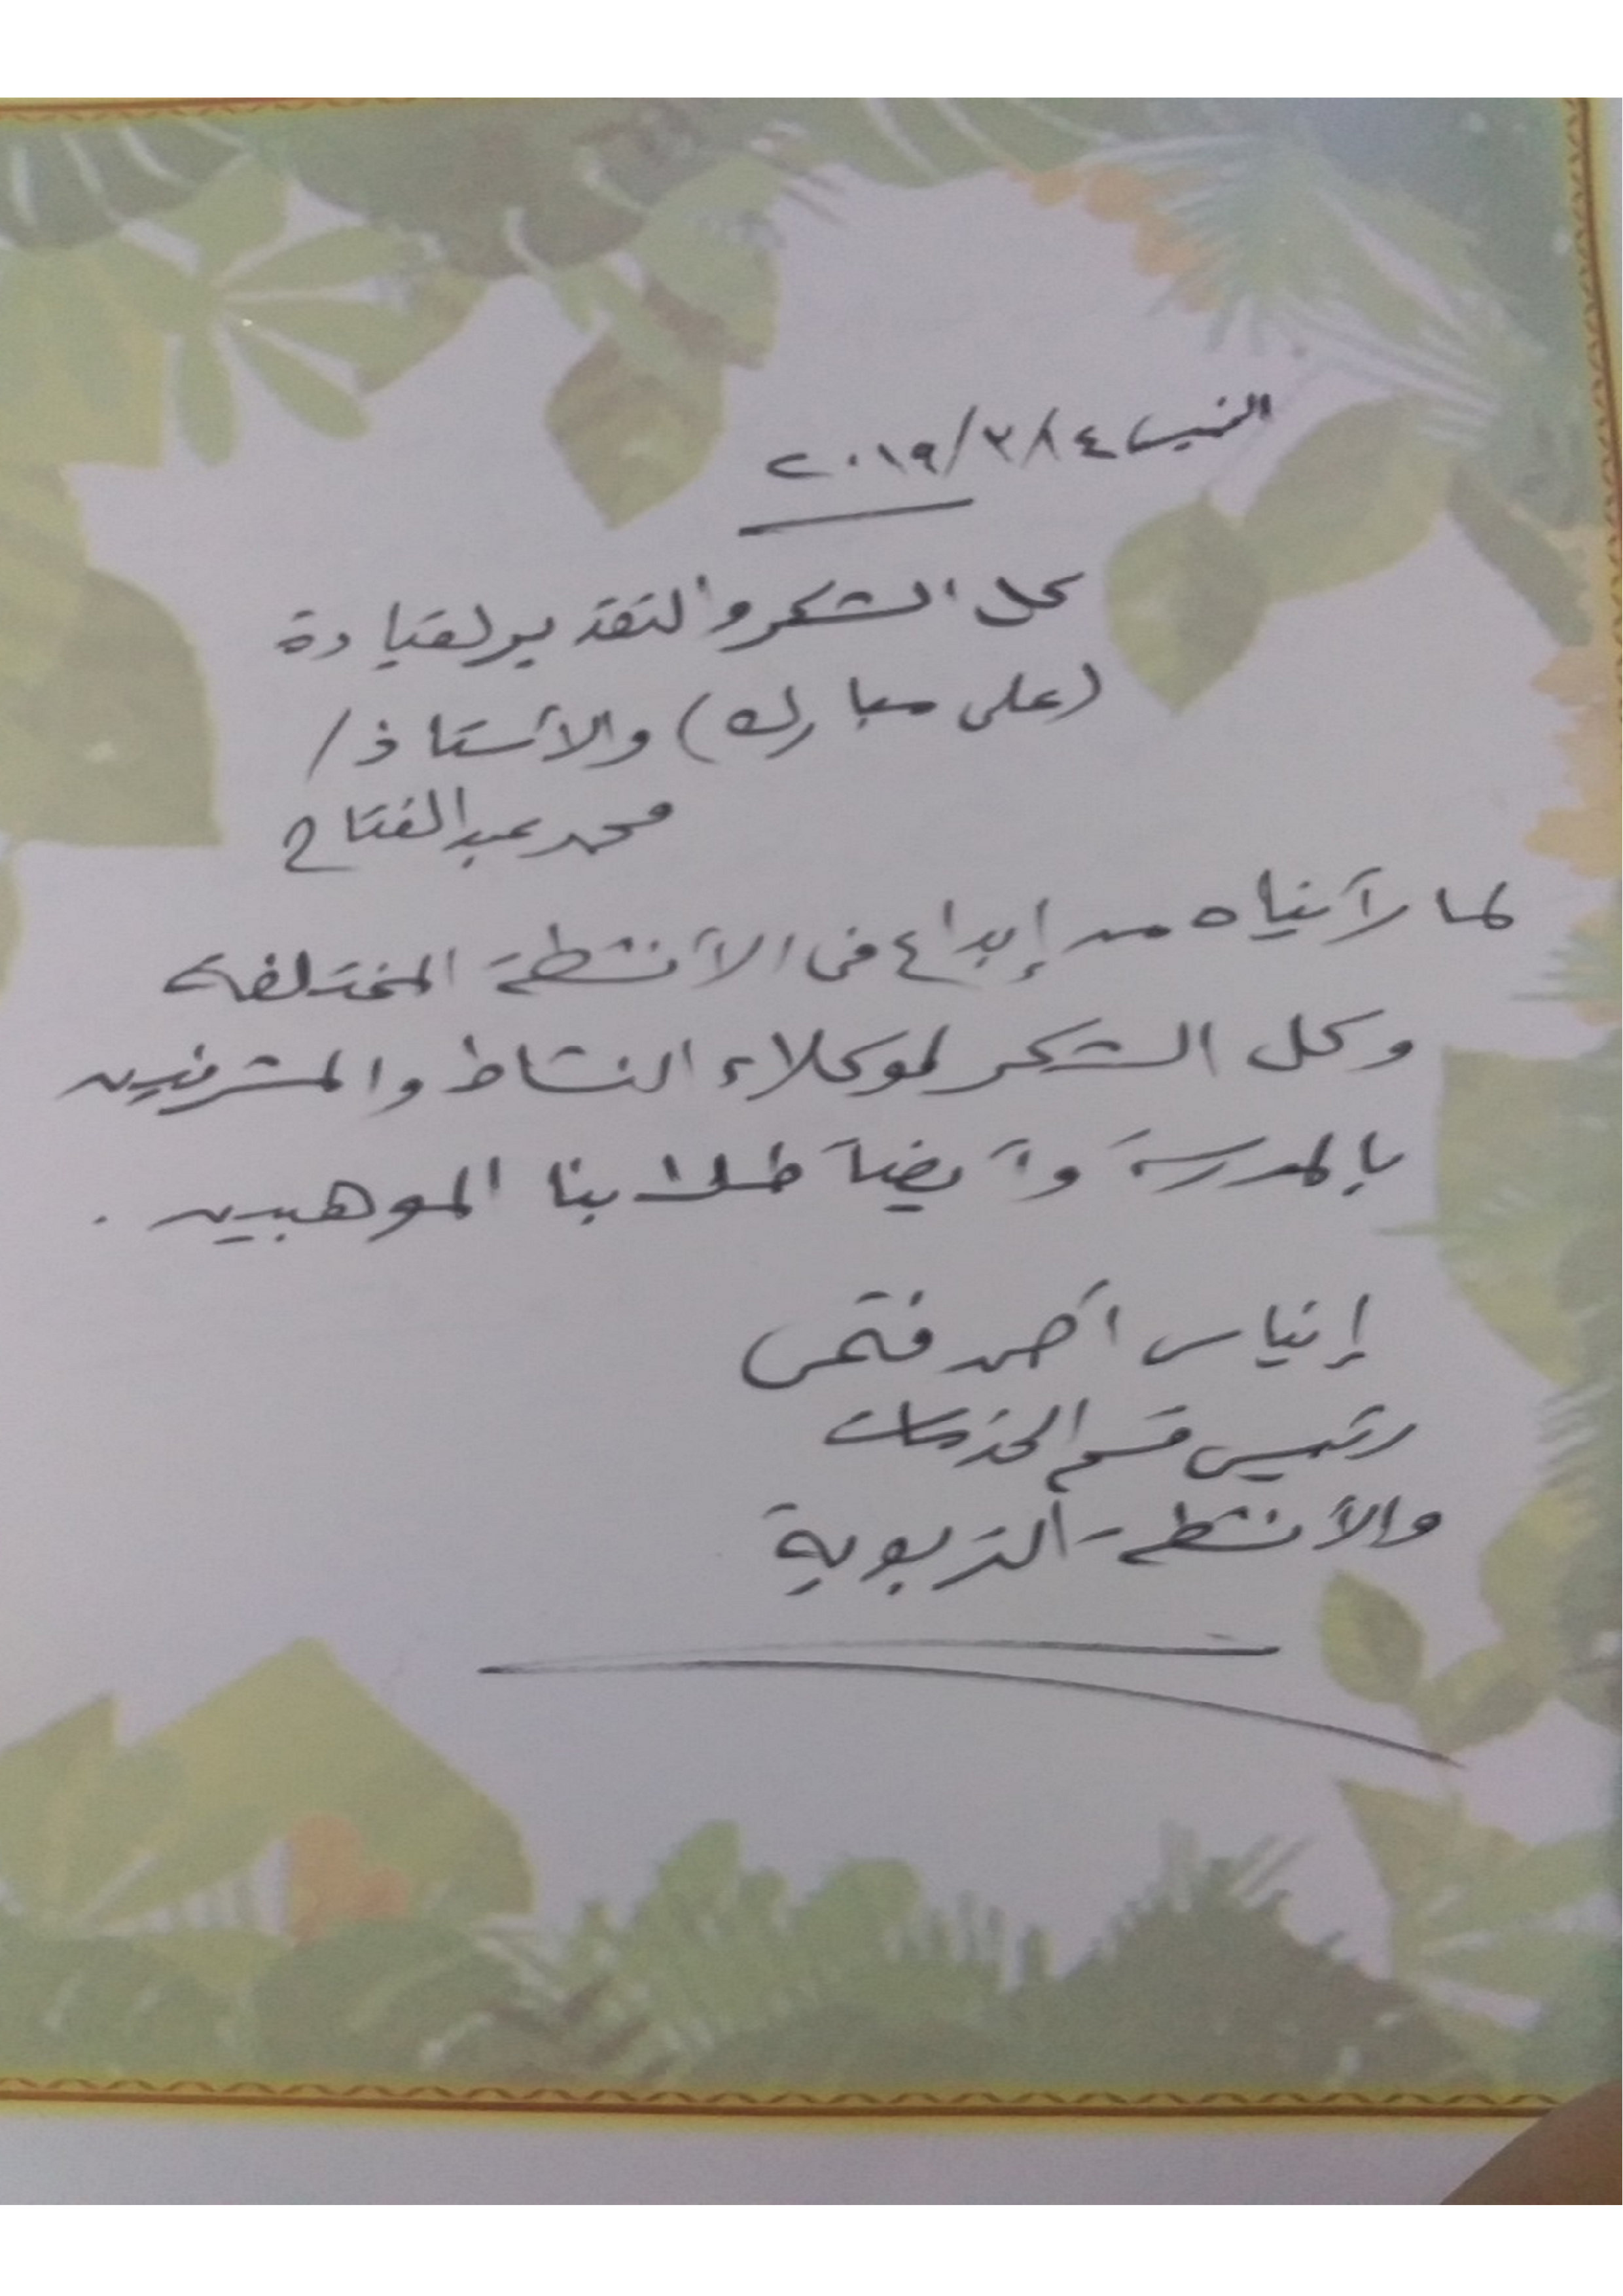 الخميس ١٤/٣/٢٠١٩
كل الشكر والتقدير لقيادة
(على مبارك) والأستاذ/
محمد عبد الفتاح
لما رأيناه من إبداع فى الأنشطة المختلفة
وكل الشكر لموكلاء النشاط والمشرفين
بالمدرسة وأيضاً طلابنا الموهبين .
إيناس أحمد فتحى
رئيس قسم الخدمات
والأنشطة التربوية